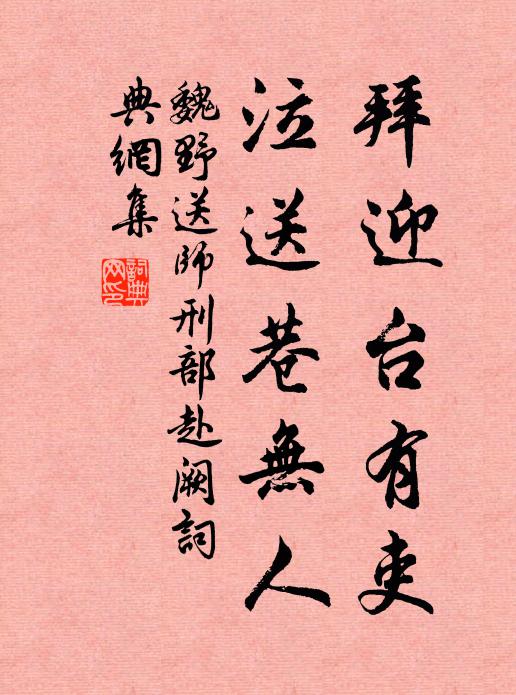 拜迎台有吏
泣送巷無人
魏野送師刑部赴阙詞
典網集
詞典
网印